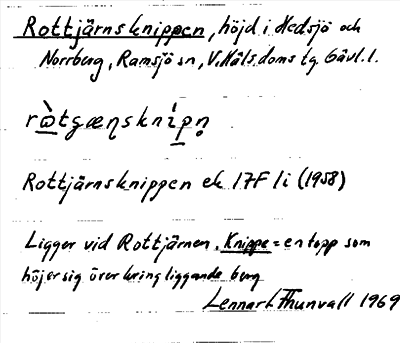 Rottjärnsknippen, höjd i Hedsjö och
Norrberg, Ramsjö sn, V. Häls. doms tg. Gävl. l.
ròtgæɳsknípn̥
Rottjärnsknippen ek 17F 1i (1958)
Ligger vid Rottjärnen. Knippe = en topp som
höjer sig över kringliggande berg
Lennart Thunvall 1969